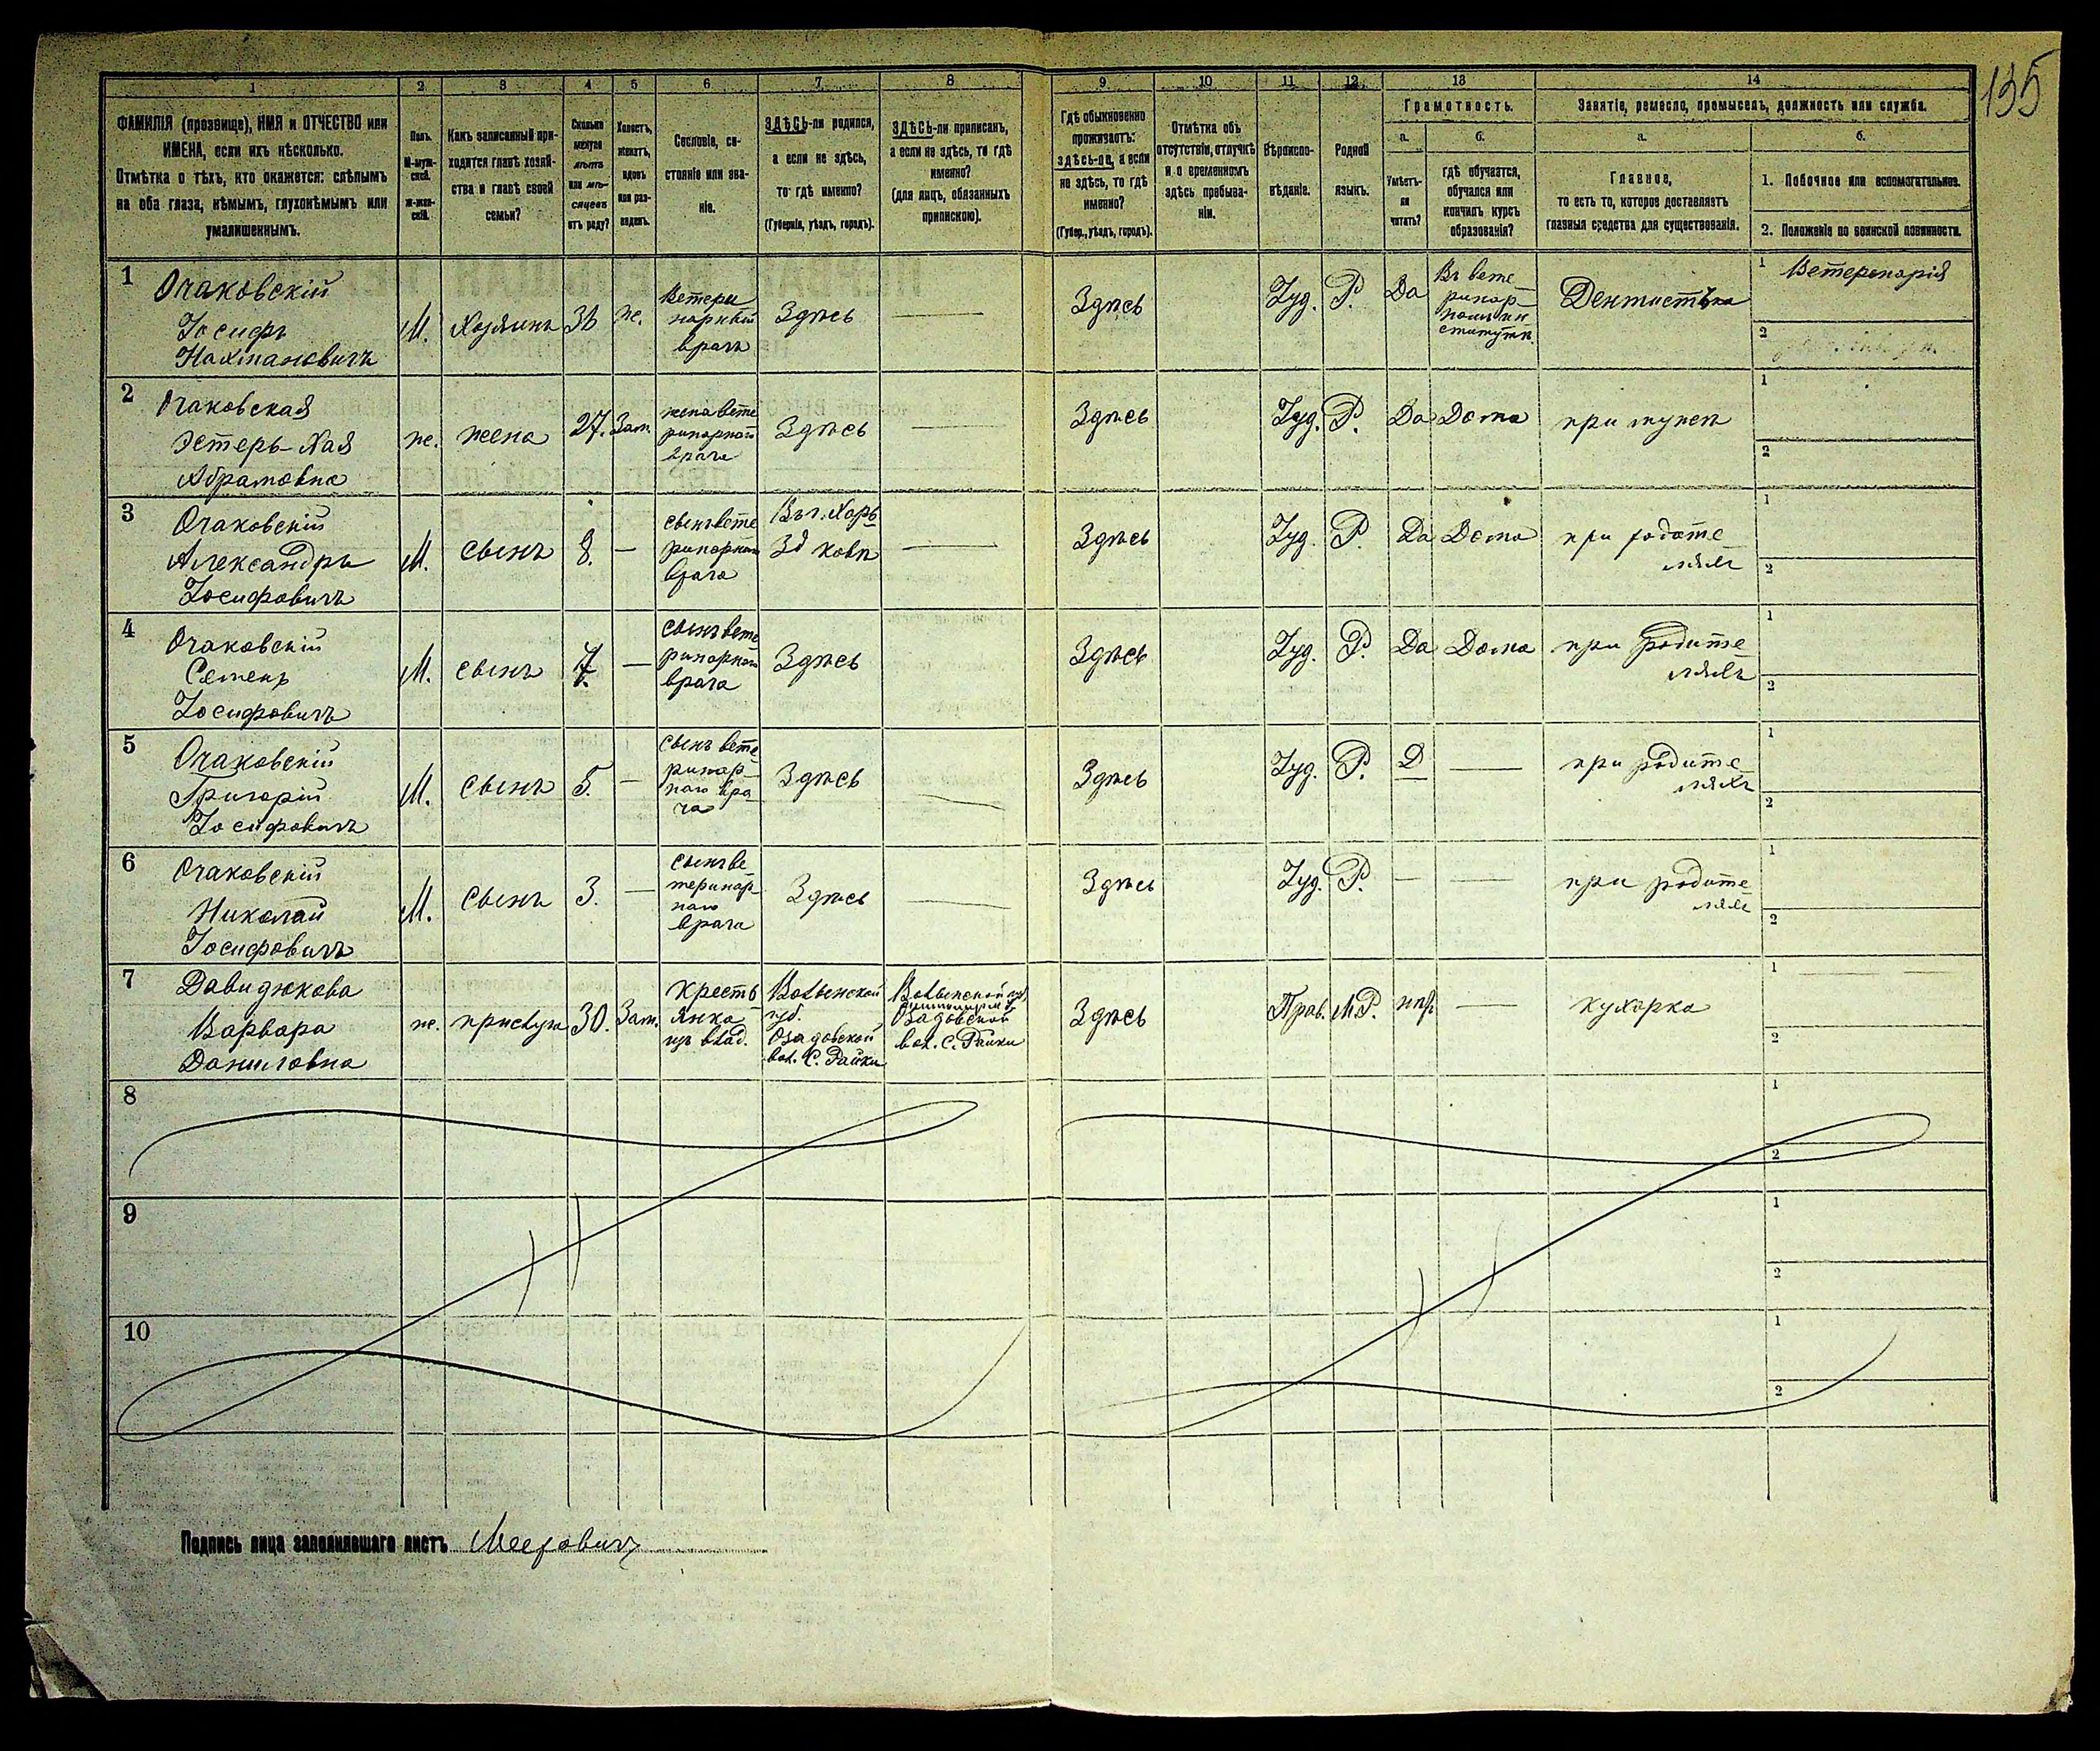 135
1 2 3 4 5 6 7 8 9 10 11 12 13 14
ФАМИЛІЯ (прозвище), ИМЯ и ОТЧЕСТВО или
ИМЕНА, если ихъ нѣсколько.
Отмѣтка о тѣхъ, кто окажется: слѣпымъ
на оба глаза, нѣмымъ, глухонѣмымъ или
умалишеннымъ.
Полъ.
М-муж-
ской.
Ж-жен-
скій.
Какъ записанный при-
ходится главѣ хозяй-
ства и главѣ своей
семьи?
Сколько
минуло
лѣтъ
или мѣ-
сяцевъ
отъ роду?
Холостъ,
женатъ,
вдовъ
или раз-
веденъ.
Сословіе, со-
стояніе или зва-
ніе.
ЗДѢСЬ-ли родился,
а если не здѣсь,
то гдѣ именно?
(Губернія, уѣздъ, городъ).
ЗДѢСЬ-ли приписанъ,
а если не здѣсь, то гдѣ
именно?
(для лицъ, обязанныхъ
припискою).
Гдѣ обыкновенно
проживаетъ:
здѣсь-ли, а если
не здѣсь, то гдѣ
именно?
(Губер., уѣздъ, городъ).
Отмѣтка объ
отсутствіи, отлучкѣ
и о временномъ
здѣсь пребыва-
ніи.
Вѣроиспо-
вѣданіе.
Родной
языкъ.
Грамотность.
а.
Умѣетъ-
ли
читать?
б.
гдѣ обучается,
обучался или
кончилъ курсъ
образованія?
Занятіе, ремесло, промыселъ, должность или служба.
а.
Главное,
то есть то, которое доставляетъ
главныя средства для существованія.
б.
1. Побочное или вспомогательное.
2. Положеніе по воинской повинности.
1
Очаковскій
Іосифъ
Нахмановичъ
М.
Хозяинъ
ж.
Ветери
нарный
врачъ
Здѣсь
Здѣсь
Іуд.
Р.
Да
Въ вете
ринар-
номъ ин
ститутѣ.
1 Ветеринарія
2
2
Очаковская
Эстеръ-Хая
Абрамовна
ж.
жена
27.
Зам.
жена вете
ринарнаго
врача
Здѣсь
Здѣсь
Іуд.
Р.
Да
Дома
при мужѣ
1
2
3
Очаковскій
Александръ
Іосифовичъ
М.
сынъ
8.
сынъ вете
ринарнаго
врача
Въ г. Харь
ковѣ
Здѣсь
Іуд.
Р.
Да
Дома
при родите
ляхъ
1
2
4
Очаковскій
Семенъ
Іосифовичъ
М.
сынъ
7.
сынъ вете
ринарнаго
врача
Здѣсь
Здѣсь
Іуд.
Р.
Да
Дома
при родите
ляхъ
1
2
5
Очаковскій
Григорій
Іосифовичъ
М.
сынъ
5.
сынъ вете
ринар-
наго вра
ча
Здѣсь
Здѣсь
Іуд.
Р.
при родите
ляхъ
1
2
6
Очаковскій
Николай
Іосифовичъ
М.
сынъ
3.
сынъ ве-
теринар-
наго
врача
Здѣсь
Здѣсь
Іуд.
Р.
при родите
ляхъ
1
2
7
Давидюкова
Варвара
Даниловна
ж.
прислуга
30.
Зам.
Кресть
янка
изъ влад.
Волынской
губ.
Озадовской
вол. С. Райки
Волынской губ.
Озадовской
вол. С. Райки
Здѣсь
Прав.
М.Р.
кухарка
1
2
8
1
2
9
1
2
10
1
2
Подпись лица заполнявшаго листъ Мееровичъ